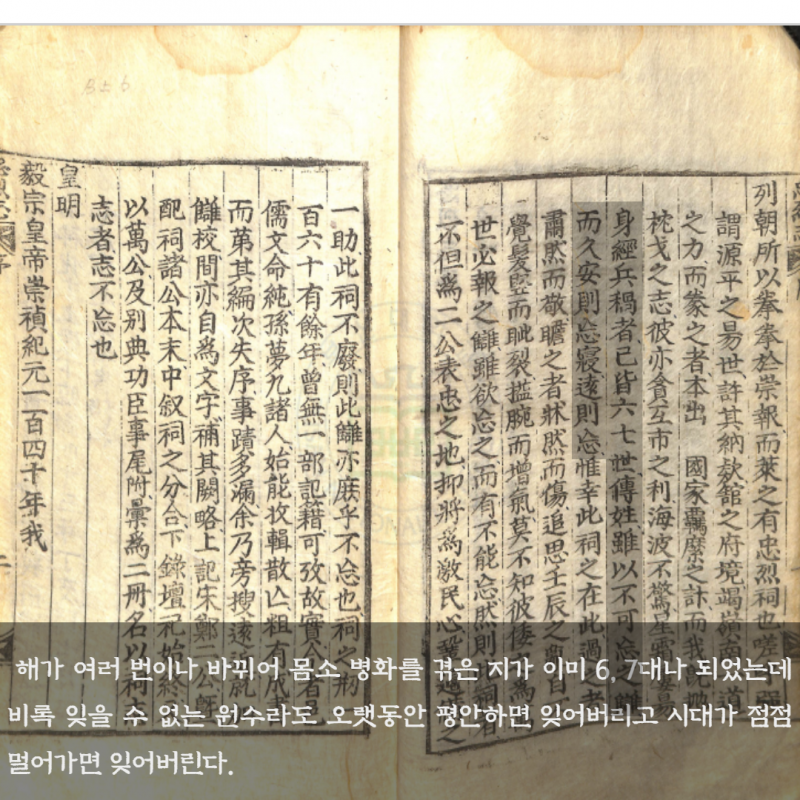 列朝所以拳拳於崇報而萊之有忠烈祠也嗟
謂源平之易世許其納欵館之府境竭嶺南道
之力而豢之者本出 國家羈縻之計而我
枕戈之志彼亦貪互市之利海波不驚星
身經兵禍者已皆六七世傳姓雖以不可忘讎
而久安則忘寢遠則忘惟幸此祠之在此過者
肅然而敬瞻之者牀然而傷追思壬辰之
覺髮竪而眦裂搤腕而增氣莫不知彼倭爲
世必報之讎雖欲忘之而有不能忘然則
不但爲二公表忠之地抑將爲激民心之
一助此祠不廢則此讎亦庶乎不忘也祠之刱
百六十有餘年曾無一部記籍可攷故實
儒文命純孫夢九諸人始能收輯散亡粗有成
而第其編次失序事蹟多漏余乃旁搜遠
讎校間亦自爲文字補其闕略上記宋鄭二公
配祠諸公本末中叙祠之分合下錄壇祀始終
以萬公及别典功臣事尾附彙爲二冊名以祠
志者志不忘也
皇明
毅宗皇帝崇禎紀元一百四十年我
序
해가 여러 번이나 바뀌어 몸소 병화를 겪은 지가 이미 6, 7대나 되었는데
비록 잊을 수 없는 원수라도 오랫동안 평안하면 잊어버리고 시대가 점점
멀어가면 잊어버린다.